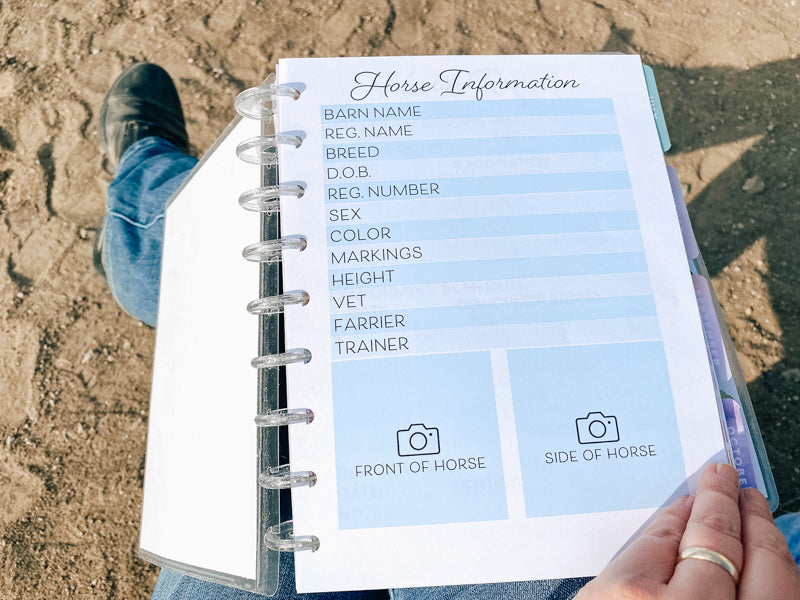 Horse Information
BARN NAME
REG. NAME
BREED
D.O.B.
REG. NUMBER
SEX
COLOR
MARKINGS
HEIGHT
VET
FARRIER
TRAINER
FRONT OF HORSE
SIDE OF HORSE
OCTOBER